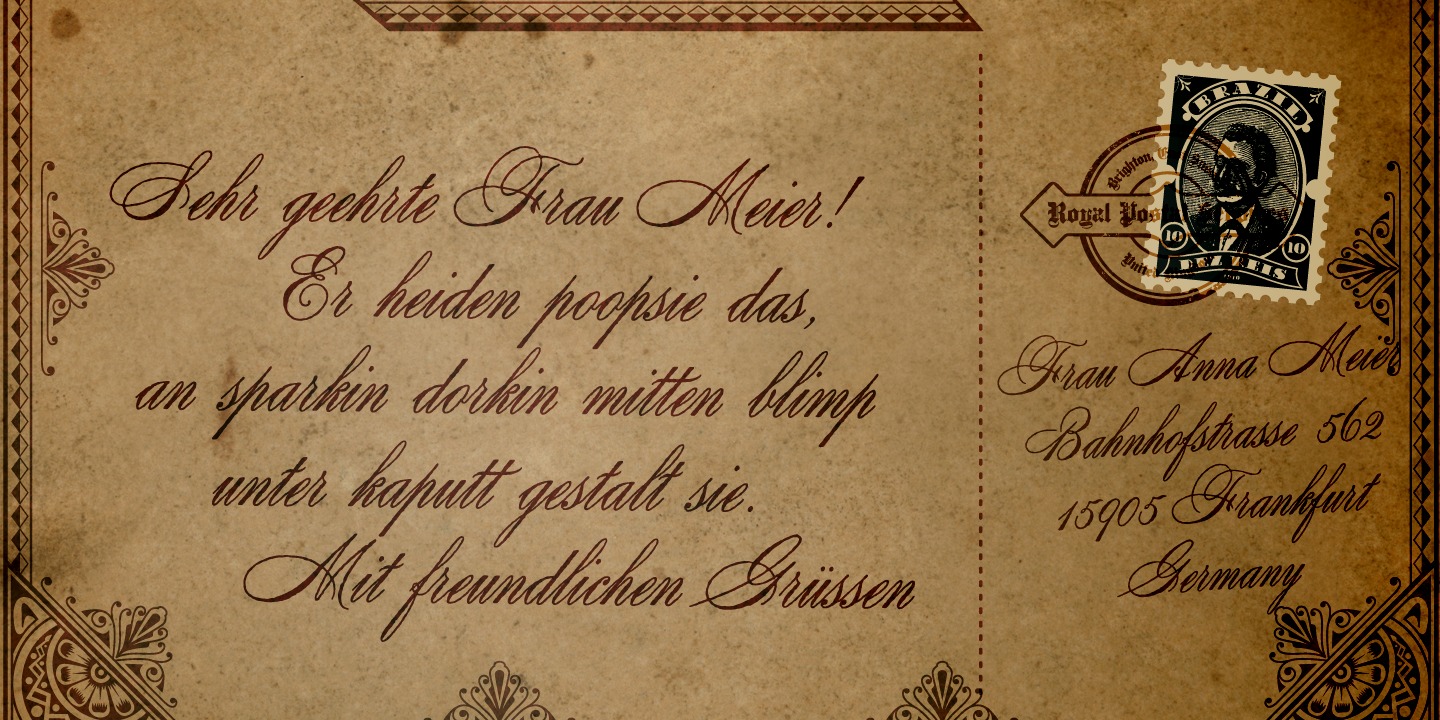 Sehr geehrte Frau Meier!
Er heiden poopsie das,
an sparkin dorkin mitten blimp
unter kaputt gestalt sie.
Mit freundlichen Grüssen
BRAZIL
10 10
DEZ REIS
Brighton,
Royal Pos
United
Frau Anna Meier
Bahnhofstrasse 562
15905 Frankfurt
Germany